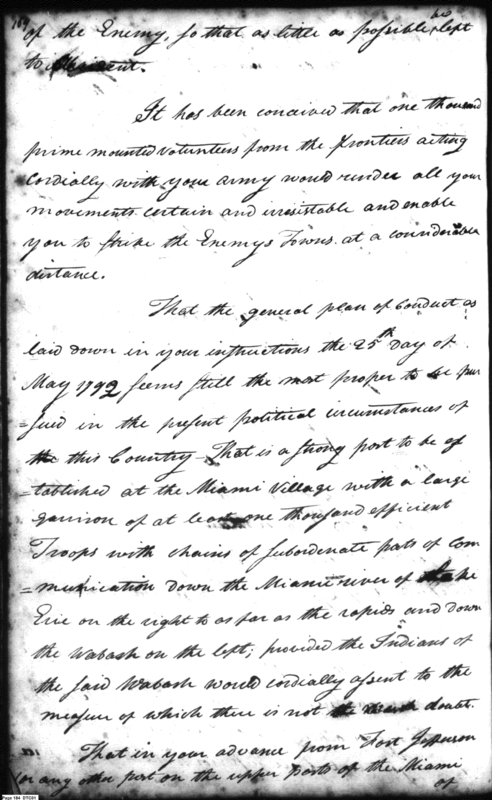 169
of the Enemy, so that as little as possible be left
to accident.
It has been conceived that one thousand
prime mounted volunteers from the frontiers acting
Cordially with your army would render all your
movements certain and irresistable and enable
you to strike the Enemys Towns at a considerable
distance.
That the general plan of Conduct as
laid down in your instructions the 25th Day of
May 1792 seems still the most proper to be pur
=sued in the present political circumstances of
the this Country - That is a strong post to be es
=tablished at the Miami Village with a large
garrison of at least one thousand efficient
Troops with chains of subordenate posts of Com
=munication down the Miami river of Lake
Erie on the right to as far as the rapids and down
the Wabash on the left; provided the Indians of
the said Wabash would cordially assent to the
measure of which there is not the doubt.
That in your advance from Fort Jefferson
or any other post on the upper parts of the Miami
of
Page 184 DTC01